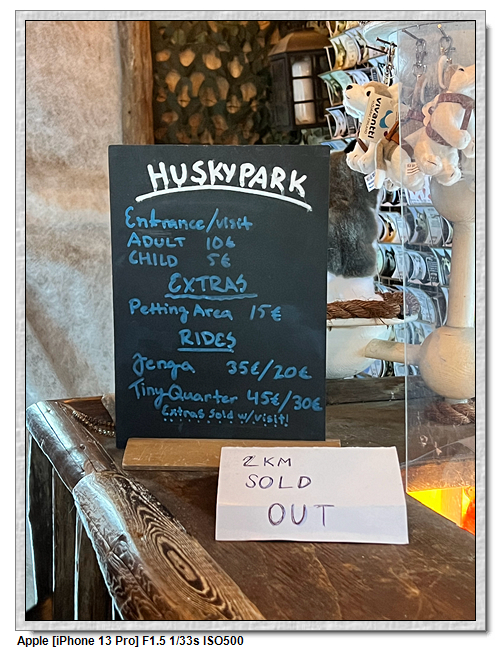 HUSKYPARK
Entrance/visit
ADULT 10€
CHILD 5€
EXTRAS
Petting Area 15€
RIDES
Jenga 35€/20€
Tiny Quarter 45€/30€
Extras sold w/visit!
2 KM
SOLD
OUT
vivantti
Apple [iPhone 13 Pro] F1.5 1/33s ISO500